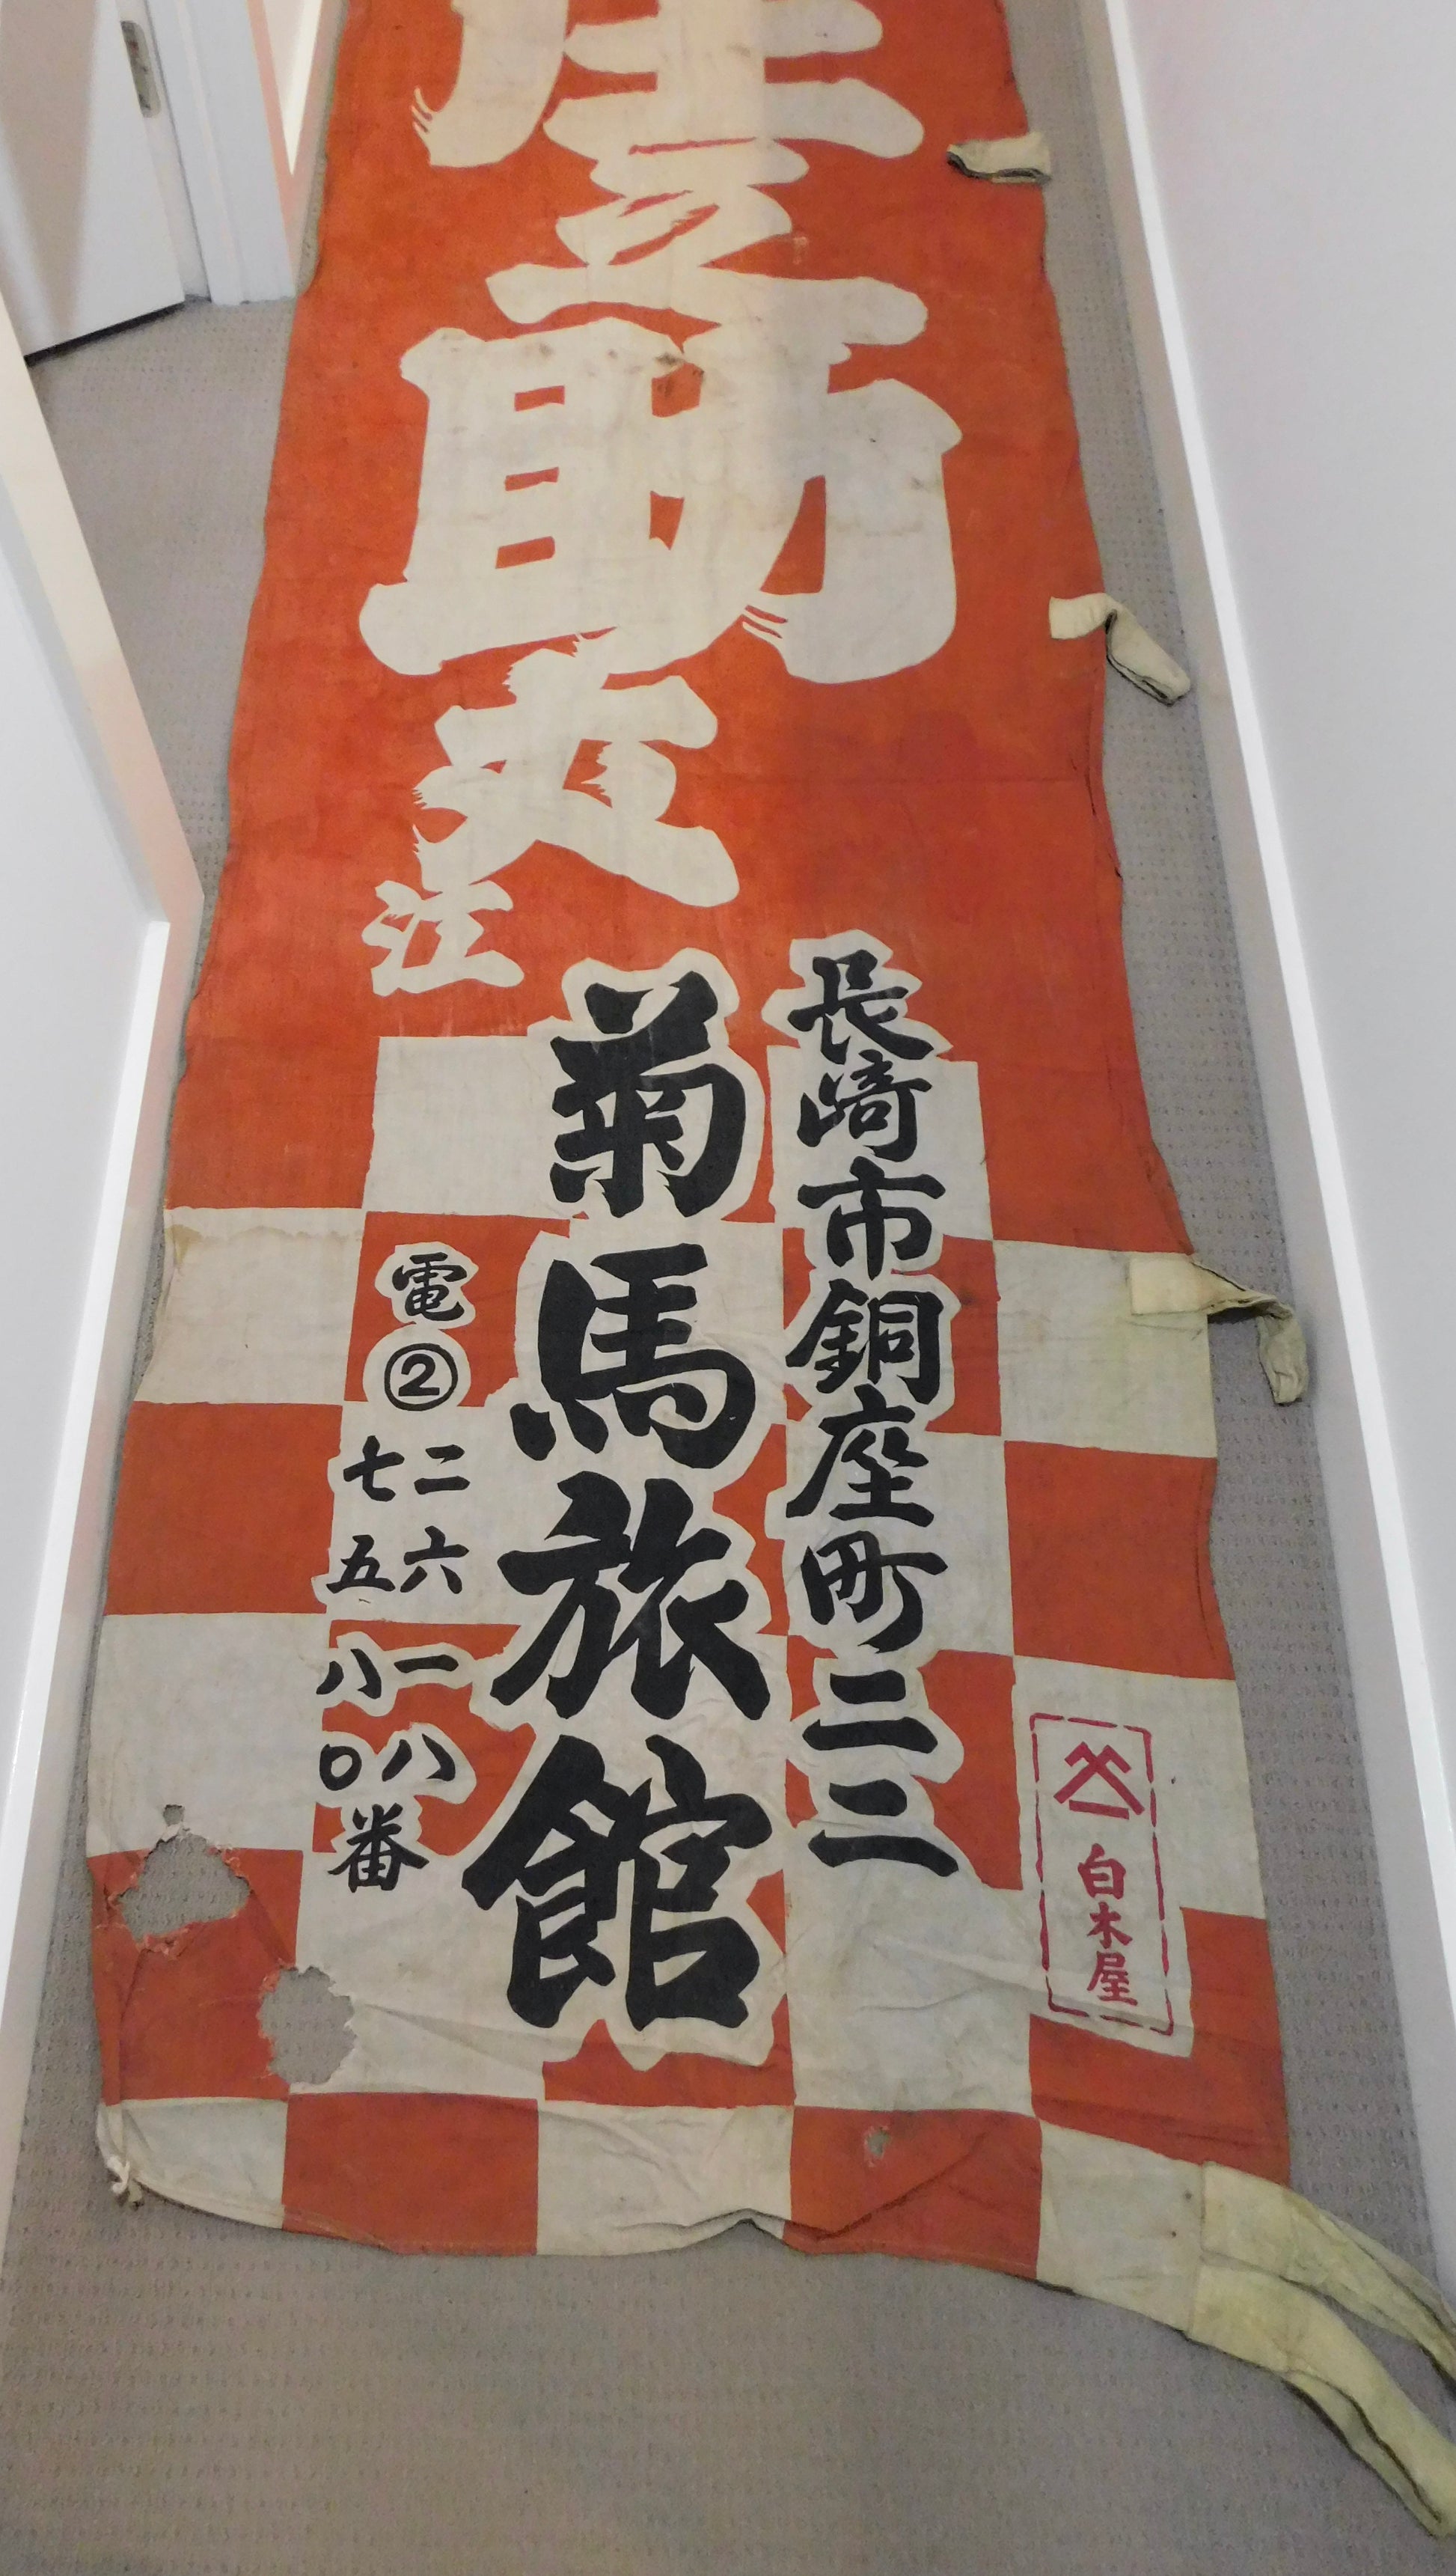 之助丈江
長崎市銅座町二二
菊馬旅館
電②
二六一八
七五八〇
番
白木屋